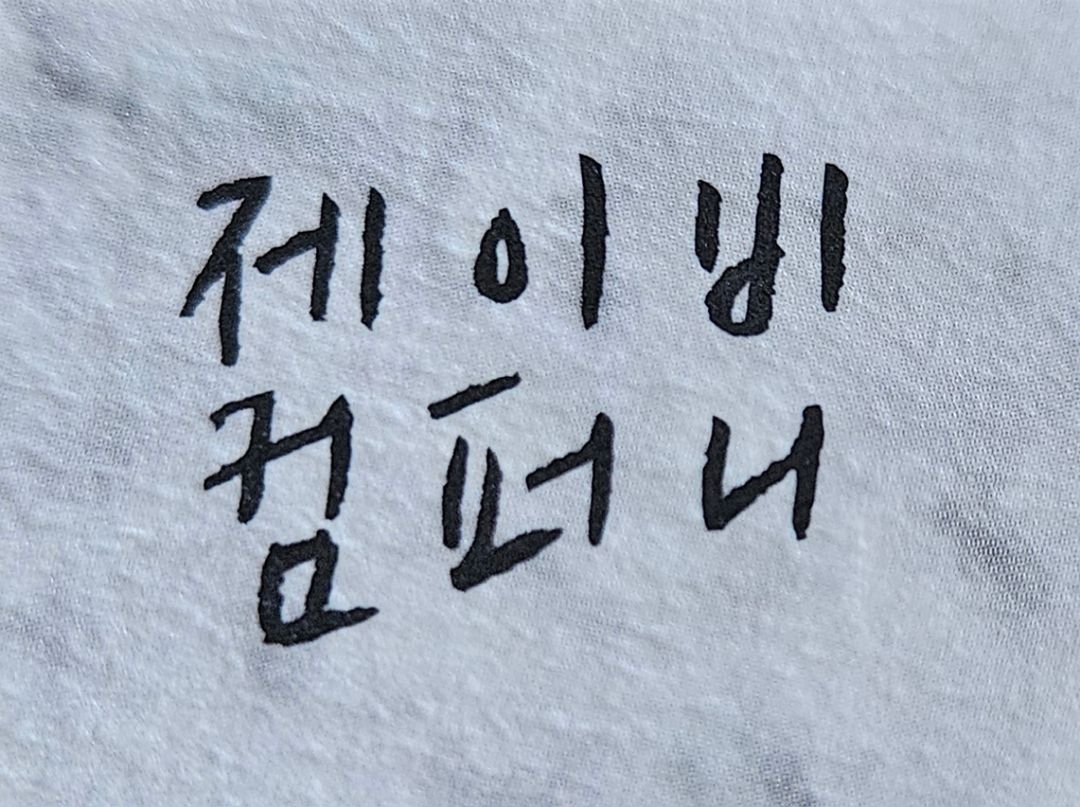 제이비
컴퍼니